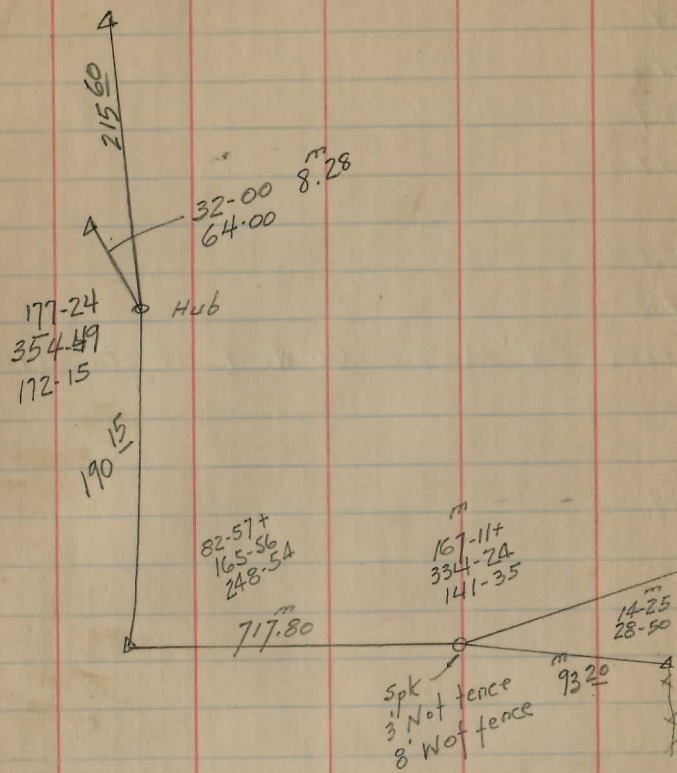 215 60
m
32-00 8.28
64.00
177-24
Hub
354-49
172-15
190 15
82-57+
165-56
248-54
m
717.80
m
167-11+
334-24
141-35
m
14-25
28-50
m
93 20
Spk
3' N of fence
8' W of fence